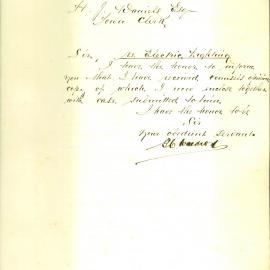 H. J. Daniels Esq
Town Clerk
Sir, re Electric Lighting
I have the honor to inform
you that I have received counsel's opinion
copy of which I now enclose together
with case submitted to him.
I have the honor to be
Sir
Your obedient Servant